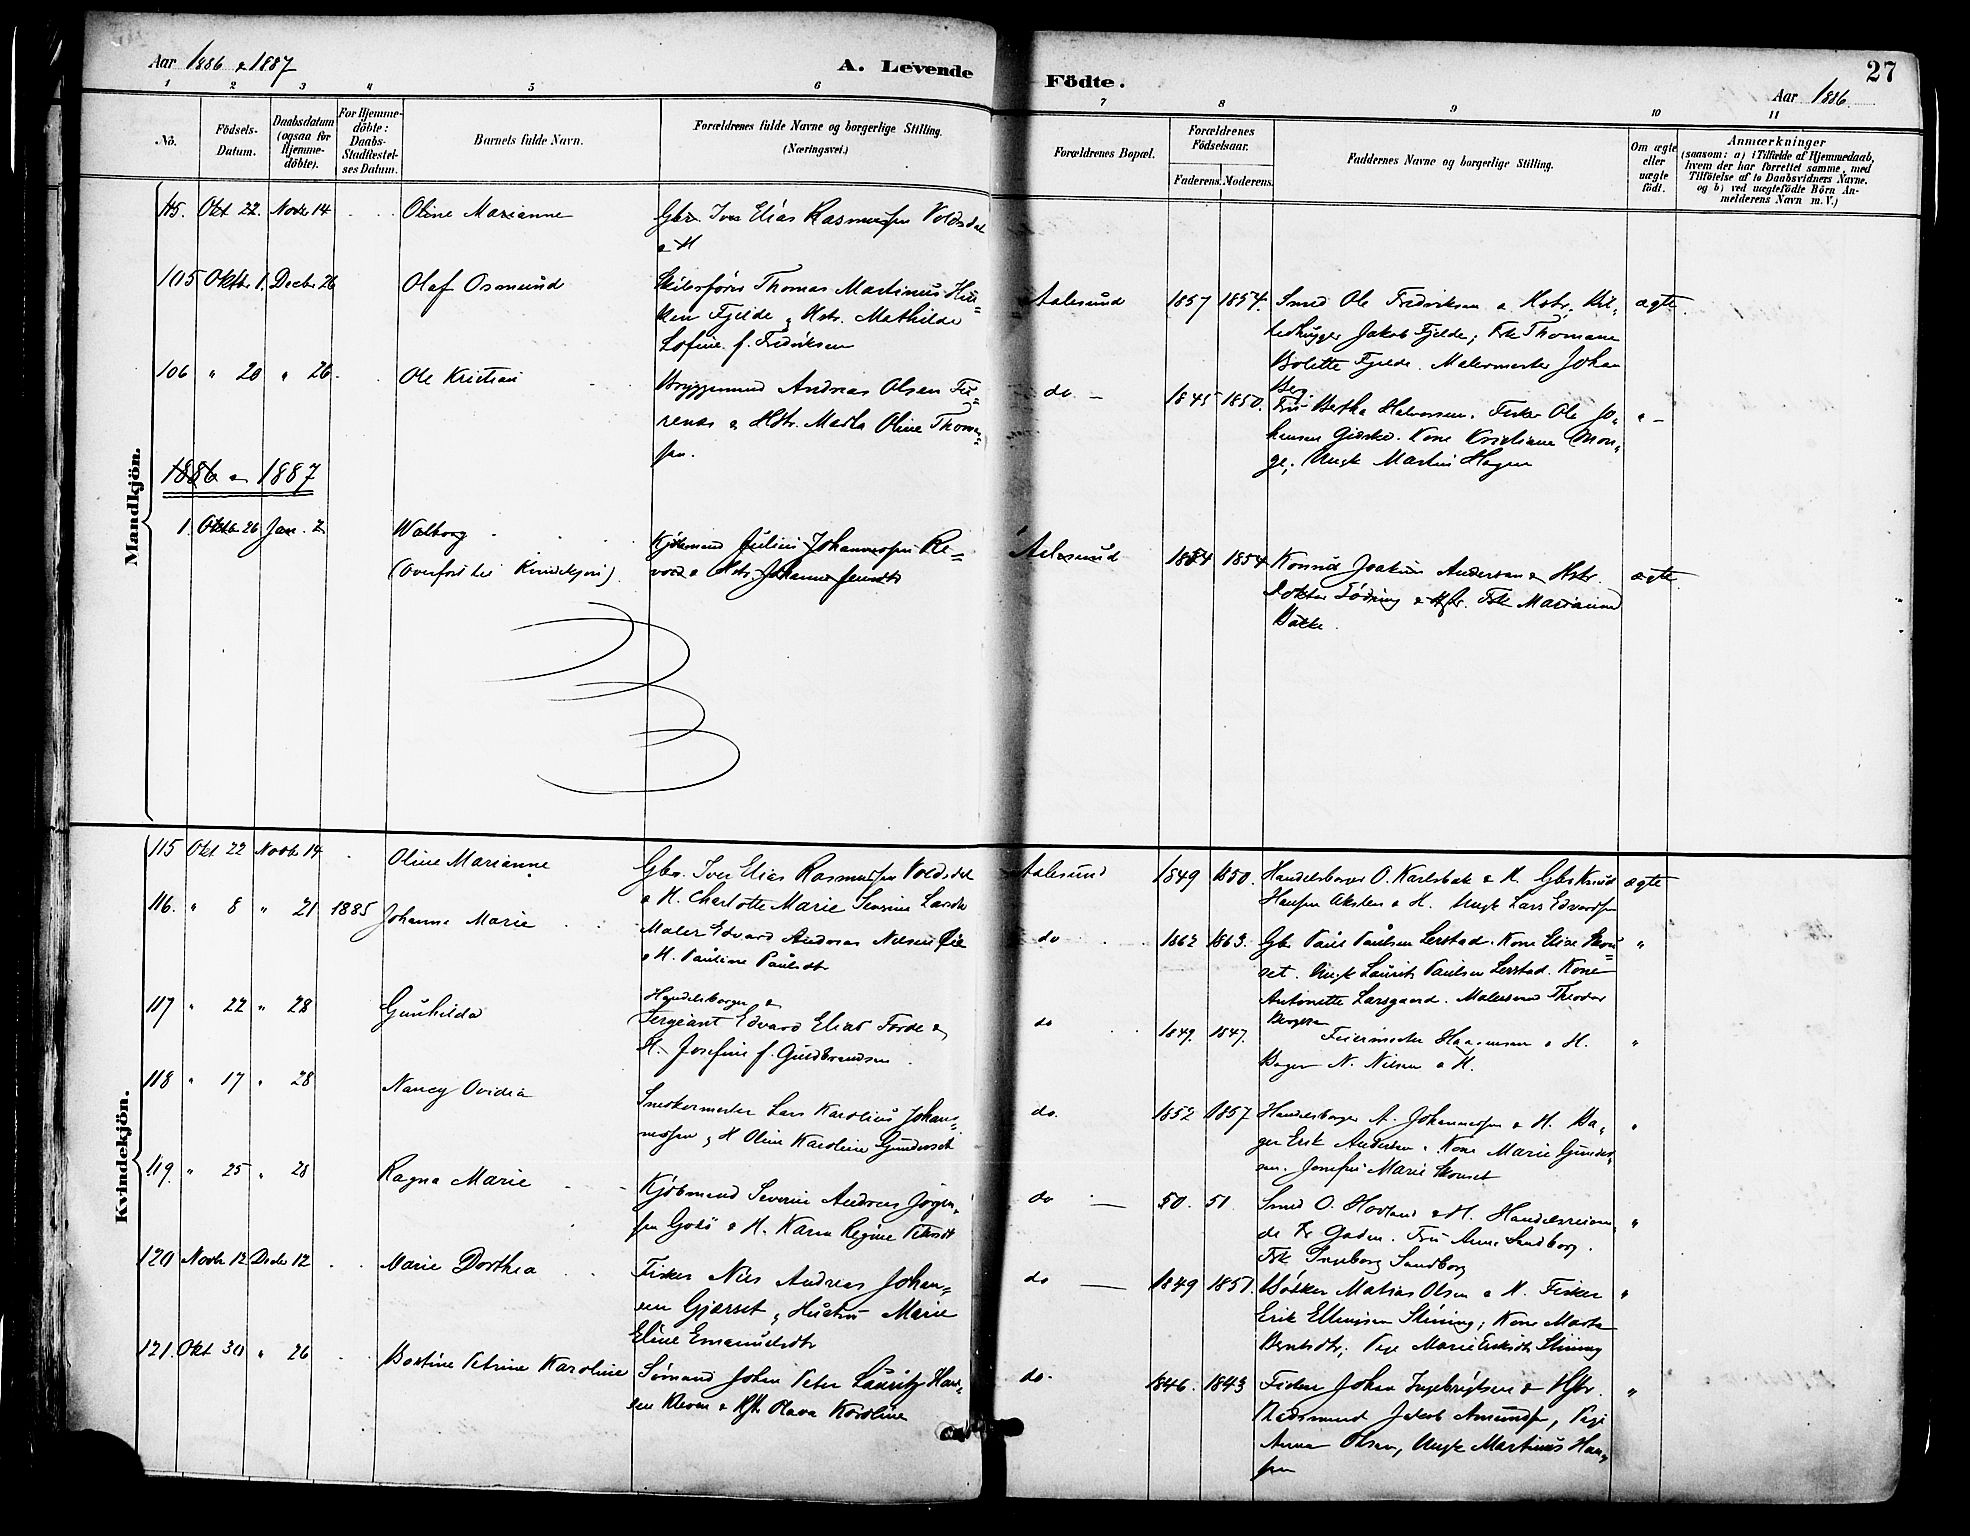 Aar 1886 & 1887
A. Levende
Födte.
Aar 1886.
27
1 2 3 4 5 6 7 8 9 10 11
No.
Födsels-
Datum.
Daabsdatum
(ogsaa for
Hjemme-
döbte).
For Hjemme-
döbte:
Daabs-
Stadfestel-
ses Datum.
Barnets fulde Navn.
Forældrenes fulde Navne og borgerlige Stilling.
(Næringsvei.)
Forældrenes Bopæl.
Forældrenes
Födselsaar.
Faderens. Moderens.
Faddernes Navne og borgerlige Stilling.
Om ægte
eller
uægte
födt.
Anmærkninger
(saasom: a) i Tilfælde af Hjemmedaab,
hvem der har forrettet samme, med
Tilföielse af to Daabsvidners Navne.
og b) ved uægtefödte Börn An-
melderens Navn m. V.)
Mandkjön.
115. Okt 22. Novbr 14 Oline Marianne Gbr Iver Elias Rasmussen Voldsdal
& H
105 Oktbr 1. Decbr 26 Olaf Osmund Thomas Martinus
Fjelde & Hstr. Mathilde
Lofine f. Fredriksen
Aalesund 1857 1854. Smed Ole Fredriksen & Hstr.
Jakob Fjelde; Frk Thomane
Bolette Fjelde. Malermester Johan
Berg
ægte.
106 " 20 " 26 Ole Kristian Bryggemand Andreas Olsen
& Hstr. Marta Oline
sen.
do - 1845 1850. Fru Bertha Halvorsen. Fisker Ole Jo-
hansen Gidske. Kone Kristiane
Ungk Martin Hagen
" -
1886 & 1887
1. Oktbr 26 Jan. 2 Walborg
(Overført til Kvindekjøn)
Kjøbmand Julius Johannessen
& Hstr. Johanna
Aalesund 1854 1854 Konsul Joakim Andersen & Hstr.
Doktor & Hstr. Frk Marianne
Bakke.
ægte
Kvindekjön.
115 Okt 22 Novbr 14 Oline Marianne Gbr. Iver Elias Rasmussen Voldsdal
& H. Charlotte Marie Severine Larsdtr
Aalesund 1849 1850. Handelsborger O. Karlsbak & H. Gbr Knud
Hansen Aksten & H. Ungk Lars Edvardsen
ægte
116. " 8 " 21 1885 Johanne Marie Maler Edvard Andreas Nilsen Øie
& H. Pauline Paulsdtr
do 1862 1863. Gbr Paul Paulsen Lerstad. Kone Elise
Ungk Laurits Paulsen Lerstad. Kone
Antonette Larsgaard. Malersvend Theodor
Bergesen
"
117 " 22 " 28 Gunhilda Handelsborger &
Sergeant Edvard Elias Forde &
H. Josefine f. Guldbrandsen
do 1849. 1847. Feiermester Haagensen & H.
Bager N. Nilsen & H.
"
118 " 17 " 28 Nancy Ovidia Snedkermester Lars Karolius Johan-
nessen & H Oline Karoline
do. 1852 1857 Handelsborger A. Johannessen & H. Ba-
ger Erik Andersen. Kone Marie
Josefine Marie
"
119. " 25 " 28 Ragna Marie Kjøbmand Severin Andreas Jörgen-
sen Godö & H. Karen Regine
do - 50. 51. Smed O. Hovland & H. Handelsreisen-
de Fr Gaden. Fru Anne Sandborg.
Frk Ingeborg Sandborg
"
120 Novbr 12 Decbr 12 Marie Dorthea Fisker Nils Andreas Johan-
sen Gjærset & Hustru Marie
Eline Emanuelsdtr
do - 1849 1851. Bødker Matias Olsen & H. Fisker
Erik Ellingsen Slining; Kone Marta
Berntsdtr; Pige Marie Eriksdtr Slining
"
121. Okt 30 " 26 Bastine Petrine Karoline Sømand Johan Peter Lauritz Han-
sen Kleven & Hstr Olava Karoline
do - 1846. 1843 Fisker Johan Ingebrigtsen & Hstr.
Jakob Amundsen, Pige
Anna Olsen, Ungk Martinus Han-
sen
"